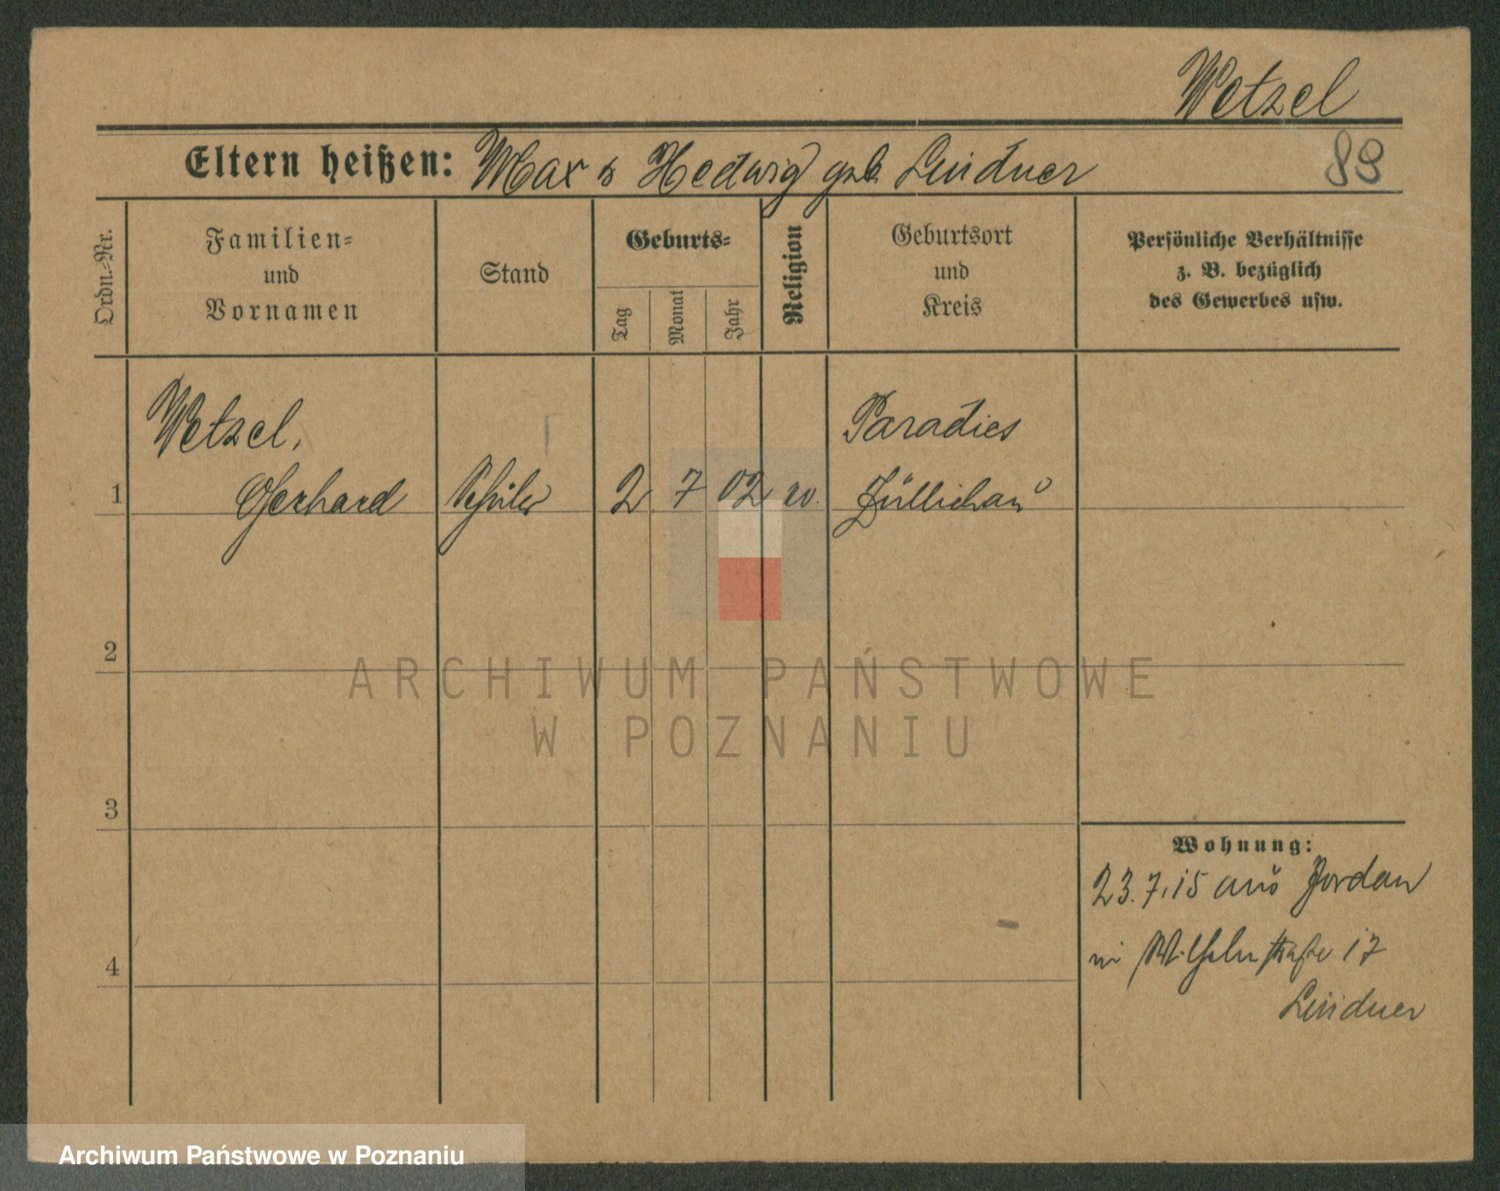 Wetzel
Eltern heißen: Max & Hedwig geb. Lindner
89
Ordn.-Nr.
Familien-
und
Vornamen
Stand
Geburts-
Tag
Monat
Jahr
Religion
Geburtsort
und
Kreis
Persönliche Verhältnisse
z. B. bezüglich
des Gewerbes usw.
Wetzel,
Paradies
1 Gerhard Schüler 2 7 02 ev. Züllichau
2
ARCHIWUM PAŃSTWOWE
W POZNANIU
3
Wohnung:
23.7.15 aus Jordan
Wilhelmstraße 17
4
Lindner
Archiwum Państwowe w Poznaniu